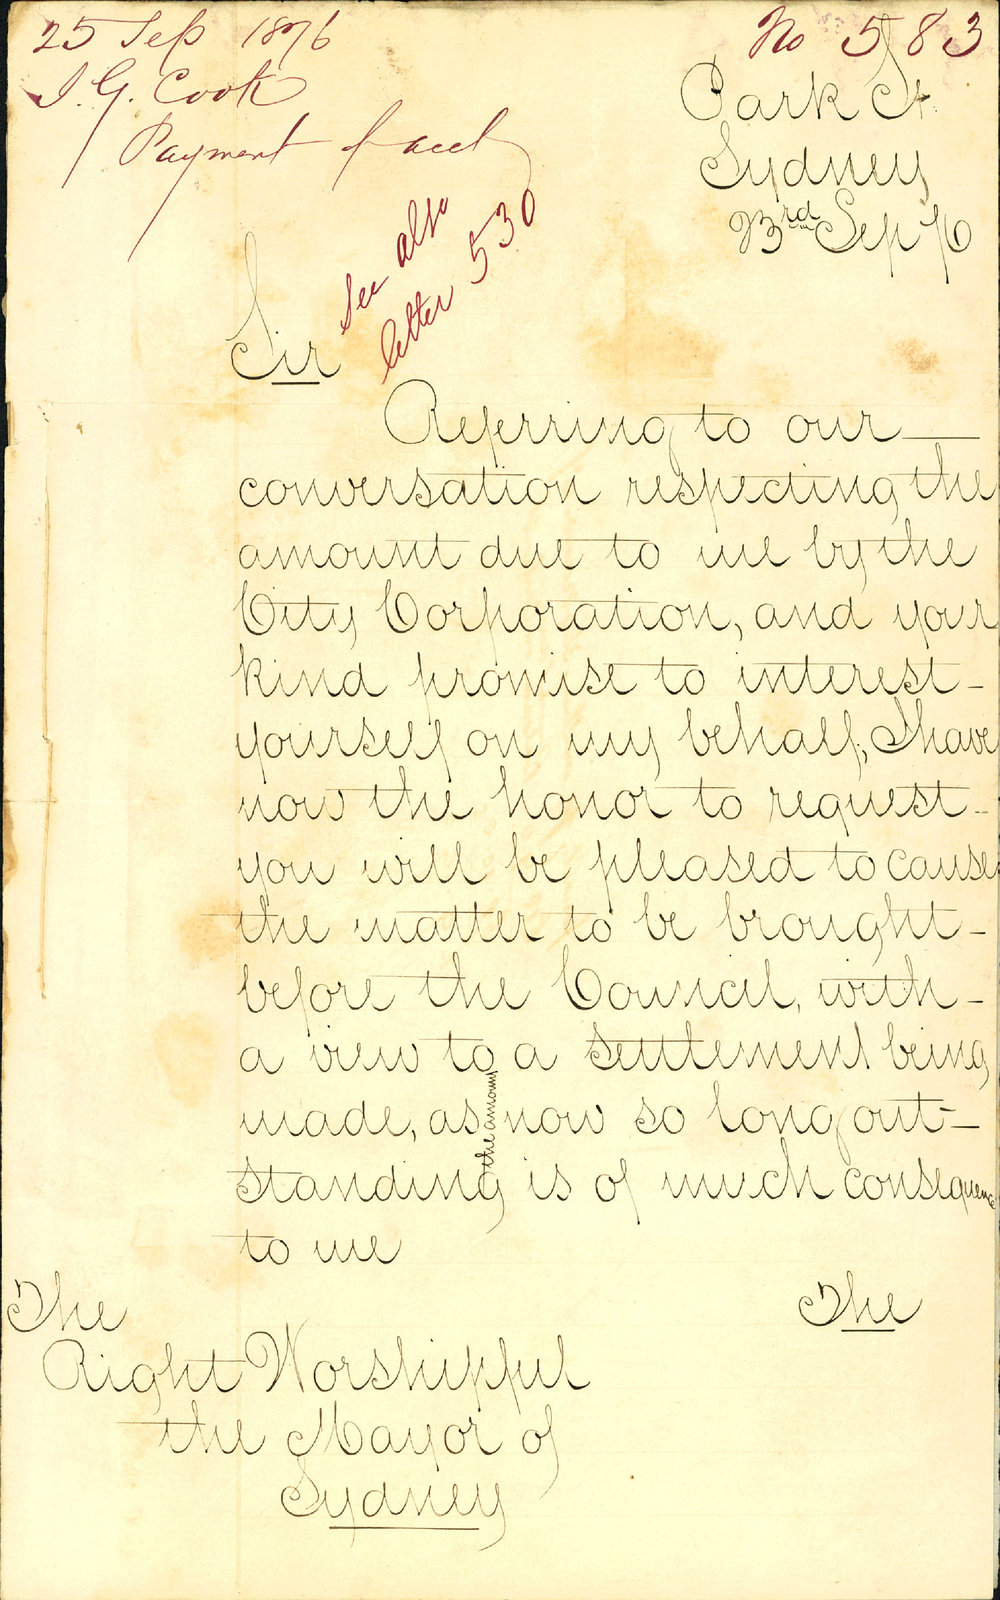 25 Sep 1876
J. G. Cook
Payment of acct
No 583
See also
letter 530
Park St
Sydney
23rd Sep 76
Sir
Referring to our
conversation respecting the
amount due to me by the
City Corporation, and your
kind promise to interest
yourself on my behalf, I have
now the honor to request
you will be pleased to cause
the matter to be brought
before the Council, with
a view to a settlement being
made, as the amount now so long out-
standing is of much consequence
to me
The
The
Right Worshipful
the Mayor of
Sydney